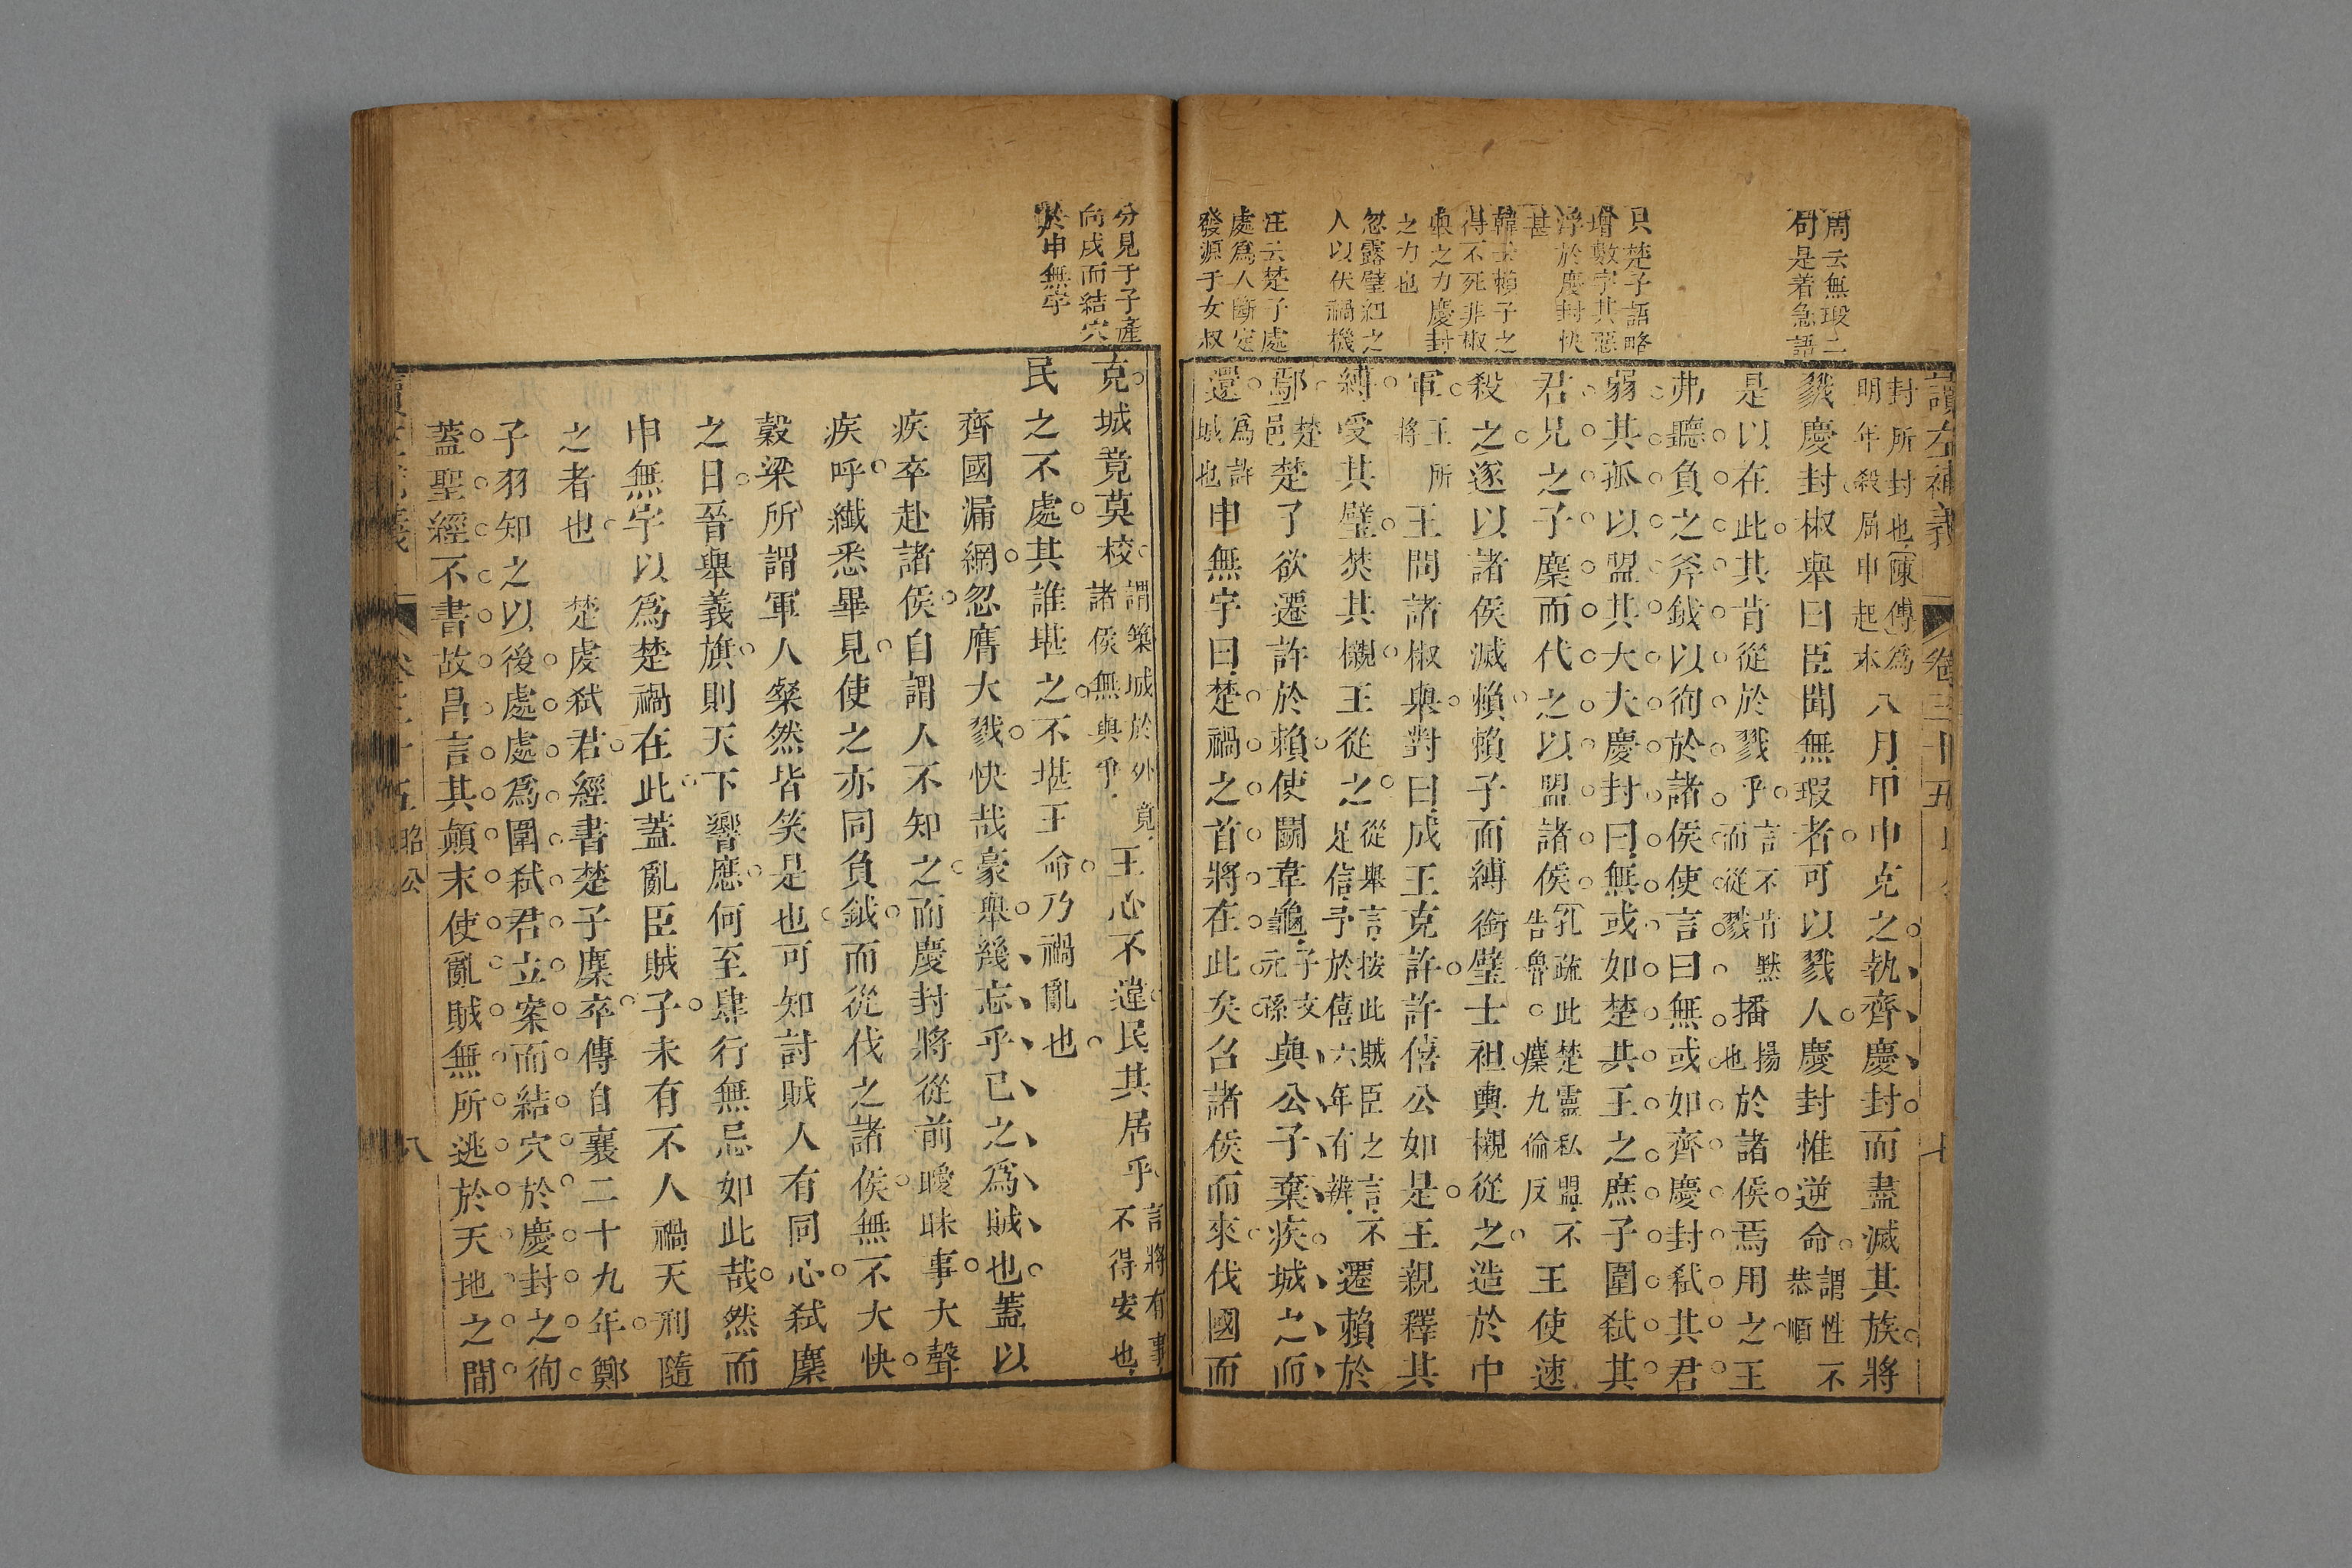 讀左補義 卷三十五 昭公 七
周云無瑕二
句是着急語
只楚子語略
增數字其惡
浮於慶封快
甚
韓云賴子之
得不死非椒
舉之力慶封
之力也
忽露璧紐之
人以伏禍機
汪云楚子處
處爲人斷定
發源于女叔
封所封也陳傅爲
明年殺屈申起本
八月甲申克之執齊慶封而盡滅其族將
戮慶封椒舉曰臣聞無瑕者可以戮人慶封惟逆命
謂性不
恭順
是以在此其肯從於戮乎
言不肯默
而從戮
播
揚
也
於諸侯焉用之王
弗聽負之斧鉞以徇於諸侯使言曰無或如齊慶封弑其君
弱其孤以盟其大夫慶封曰無或如楚共王之庶子圍弑其
君兄之子麇而代之以盟諸侯
孔疏此楚靈私盟不
告魯麇九倫反
王使速
殺之遂以諸侯滅賴賴子而縛銜璧士袒輿櫬從之造於中
軍
王所
將
王問諸椒舉對曰成王克許許僖公如是王親釋其
縛受其璧焚其櫬王從之
從舉言按此賊臣之言不
足信予於僖六年有辨
遷賴於
鄢
楚
邑
楚子欲遷許於賴使鬬韋龜
子文
元孫
與公子棄疾城之而
還
爲許
城也
申無宇曰楚禍之首將在此矣召諸侯而來伐國而
分見于子產
向戌而結穴
於申無宇
克城竟莫校
謂築城於外竟
諸侯無與爭
王心不違民其居乎
言將有事
不得安也
民之不處其誰堪之不堪王命乃禍亂也
齊國漏網忽膺大戮快哉豪舉幾忘乎已之爲賊也蓋以
疾卒赴諸侯自謂人不知之而慶封將從前曖昧事大聲
疾呼纖悉畢見使之亦同負鉞而從伐之諸侯無不大快
穀梁所謂軍人粲然皆笑是也可知討賊人有同心弑麇
之日晉舉義旗則天下響應何至肆行無忌如此哉然而
申無宇以爲楚禍在此蓋亂臣賊子未有不人禍天刑隨
之者也 楚虔弑君經書楚子麇卒傳自襄二十九年鄭
子羽知之以後處處爲圍弑君立案而結穴於慶封之徇
蓋聖經不書故昌言其顛末使亂賊無所逃於天地之間
昭公 八